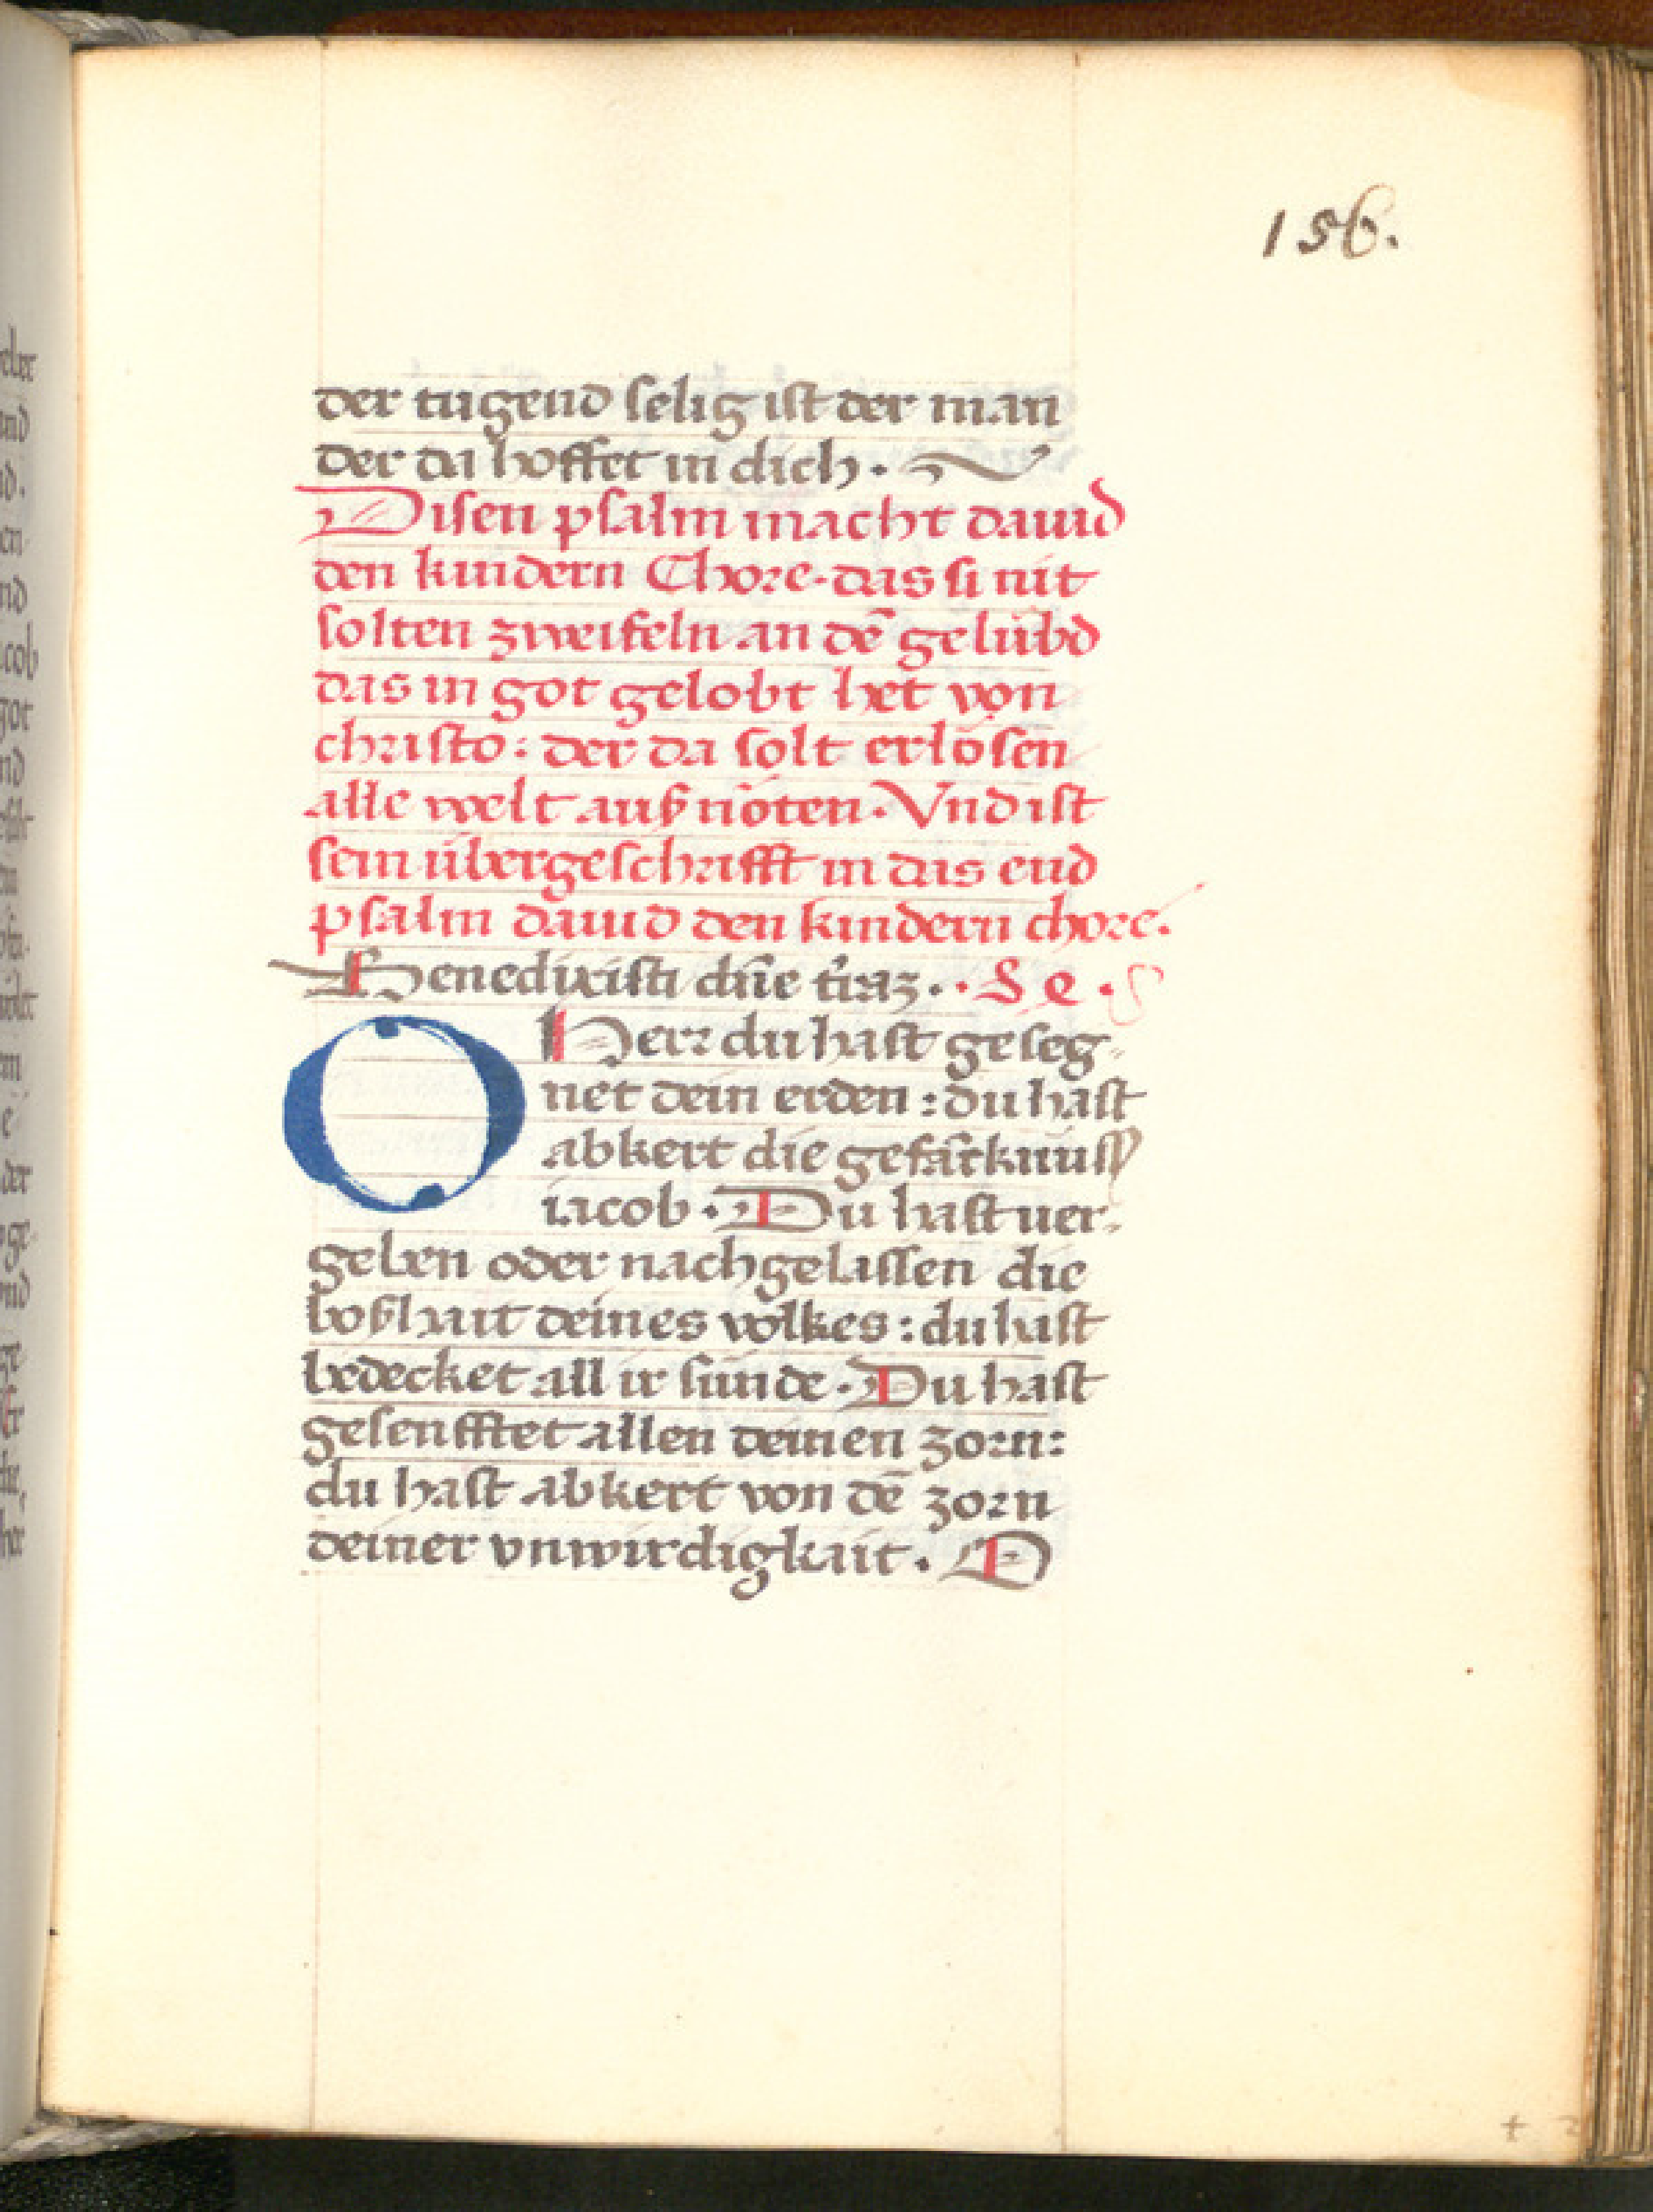 156.
der tugend selig ist der man
der da hoffet in dich.
Disen psalm macht dauid
den kindern Chore. das si nit
solten zweifeln an dē gelübd
das in got gelobt het von
christo: der da solt erlösen
alle welt auß nöten. Vnd ist
sein übergeschrifft in das end
psalm dauid den kindern chore.
Benedixisti dn̄e t̄raz.. S e.
O Herr du hast geseg-
net dein erden: du hast
abkert die gefäcknuss
iacob. Du hast uer-
geben oder nachgelassen die
boßhait deines volkes: du hast
bedecket all ir sünde. Du hast
gesenfftet allen deinen zorn:
du hast abkert von dē zorn
deiner vnwirdigkait. O